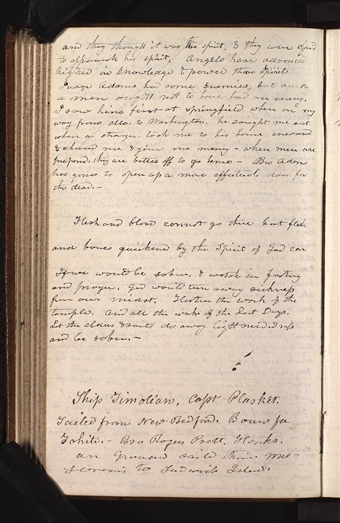 and they thought it was the spirit, & they were afraid
to approach his spirit, Angels have advanced
higher in knowledge & power than spirits
Judge Adams had some Enemies, but such
a man ought not to have had an enemy,
I saw him first at Springfield, when on my
way from Mo. to Washington, he sought me out
when a stranger took me to his home, encouraged
& cheered me & give me money - when men are
prepared, they are better off to go home - Bro Adams
has gone to open up a more effectual door for
the dead. -
Flesh and blood cannot go there but flesh
and bones quickened by the Spirit of God can
If we would be sober, & watch in fasting
and prayer, God would turn away sickness
from our midst. Hasten the work of the
temple. and all the work of the Last Days,
Let the elders & saints do away light mindedness
and be sober. -
Ship Timolian, Capt Plasket.
Sailed from New Bedford. Bound for
Tahiti. - Bro Rogers Pratt, Hanks.
an Grouard sailed thair
to Sandwich Islands.